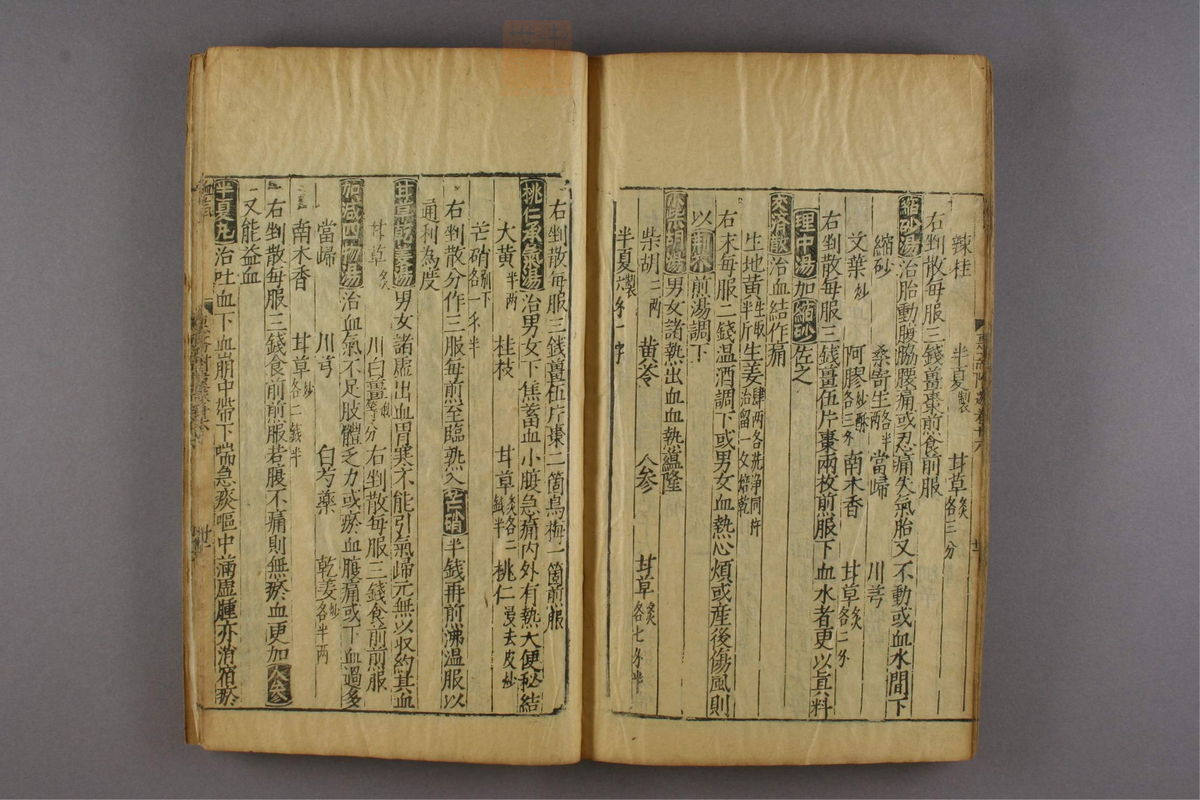 辣桂 半夏製 甘草炙各三分
右剉散每服三錢薑棗煎食前服
縮砂湯治胎動腹脇腰痛或忍痛失氣胎又不動或血水間下
縮砂 桑寄生各半兩 當歸 川芎
艾葉炒 阿膠炒酥各三分 南木香 甘草炙各二分
右剉散每服三錢薑伍片棗兩枚煎服下血水者更以真料
理中湯加縮砂佐之
交濟散治血結作痛
生地黃生取半斤 生姜肆兩各洗淨同 治留一 焙乾
右末每服二錢温酒調下或男女血熱心煩或產後傷風則
以荊芥煎湯調下
小柴胡湯男女諸熱出血血熱蘊隆
柴胡二兩 黄芩 人參 甘草炙各七分半
半夏製六分一字
右剉散每服三錢薑伍片棗二箇烏梅一箇煎服
桃仁承氣湯治男女下焦蓄血小腹急痛內外有熱大便秘結
大黃半兩 桂枝 甘草炙各二錢半 桃仁浸去皮炒
芒硝別下各一分半
右剉散分作三服每煎至臨熟入芒硝半錢再煎沸温服以
通利為度
甘草乾姜湯男女諸虛出血胃寒不能引氣歸元無以收約其血
甘草炙 川白薑製等分 右剉散每服三錢食前煎服
加減四物湯治血氣不足肢體乏力或瘀血腹痛或下血過多
當歸 川芎 白芍藥 乾姜炒各半兩
南木香 甘草炒各二錢半
右剉散每服三錢食前煎服若腹不痛則無瘀血更加人參
又能益血
半夏丸治吐血下血崩中帶下喘急痰嘔中滿虛腫亦消宿瘀